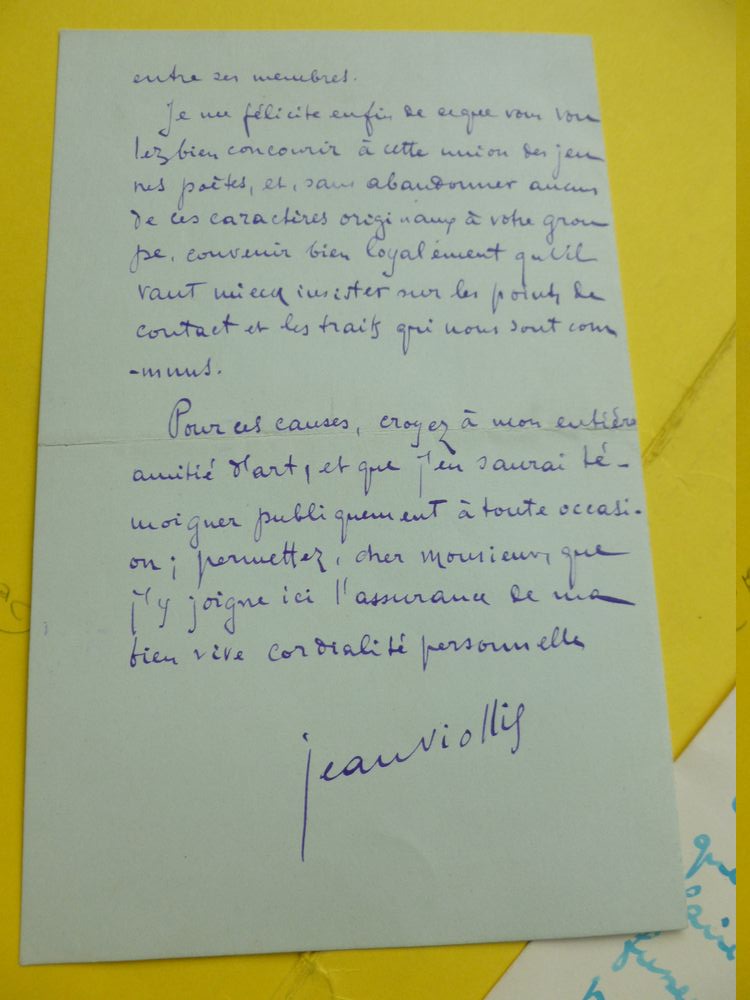 entre ses membres.
Je me félicite enfin de ce que vous vou
lez bien concourir à cette union des jeu
nes poëtes, et, sans abandonner aucun
de ces caractères originaux à votre grou
pe, convenir bien loyalement qu'il
vaut mieux insister sur les points de
contact et les traits qui nous sont com
-muns.
Pour ces causes, croyez à mon entière
amitié d'art, et que j'en saurai té-
moigner publiquement à toute occasi-
on ; permettez, cher monsieur, que
j'y joigne ici l'assurance de ma
bien vive cordialité personnelle
jean viollis